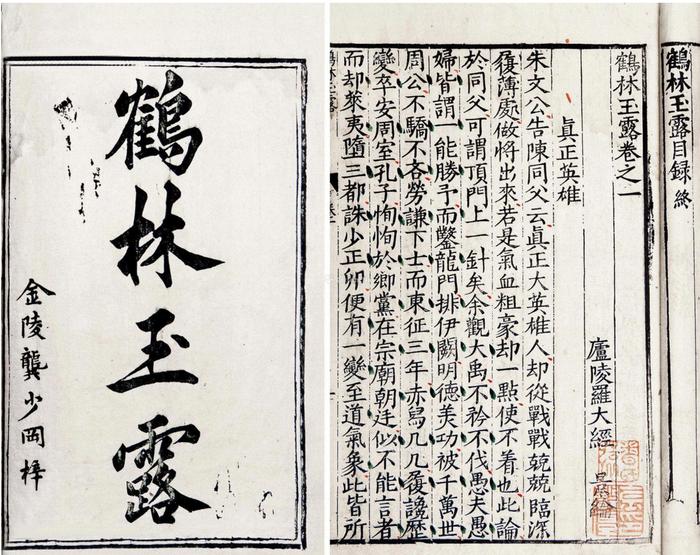 鶴林玉露
金陵龔少岡梓
鶴林玉露目録 終
鶴林玉露卷之一
廬陵羅大經
眞正英雄
朱文公告陳同父云眞正大英雄人却從戰戰兢兢臨深
履薄處做將出來若是氣血粗豪却一點使不着也此論
於同父可謂頂門上一針矣余觀大禹不矜不伐愚夫愚
婦皆謂一能勝予而鑿龍門排伊闕明德美功被千萬世
周公不驕不吝勞謙下士而東征三年赤舄几几履讒歷
變卒安周室孔子恂恂於鄉黨在宗廟朝廷似不能言者
而却萊夷墮三都誅少正卯便有一變至道氣象此皆所